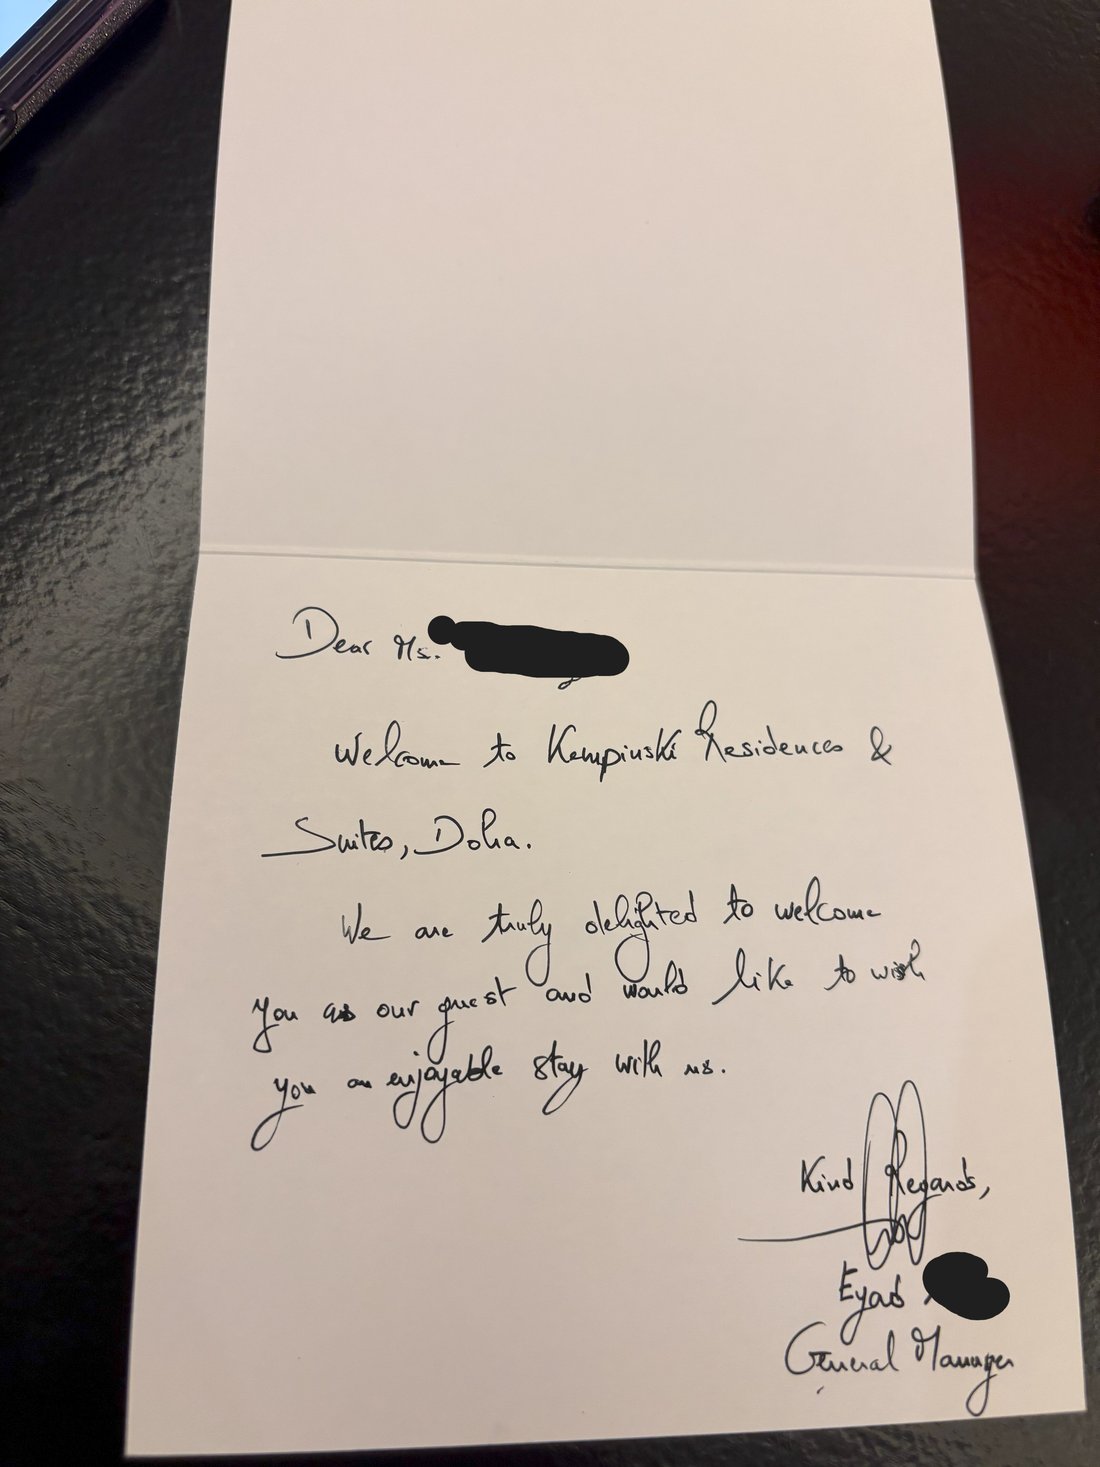 Dear Ms.
Welcome to Kempinski Residences &
Suites, Doha.
We are truly delighted to welcome
you as our guest and would like to wish
you an enjoyable stay with us.
Kind Regards,
Eyad
General Manager